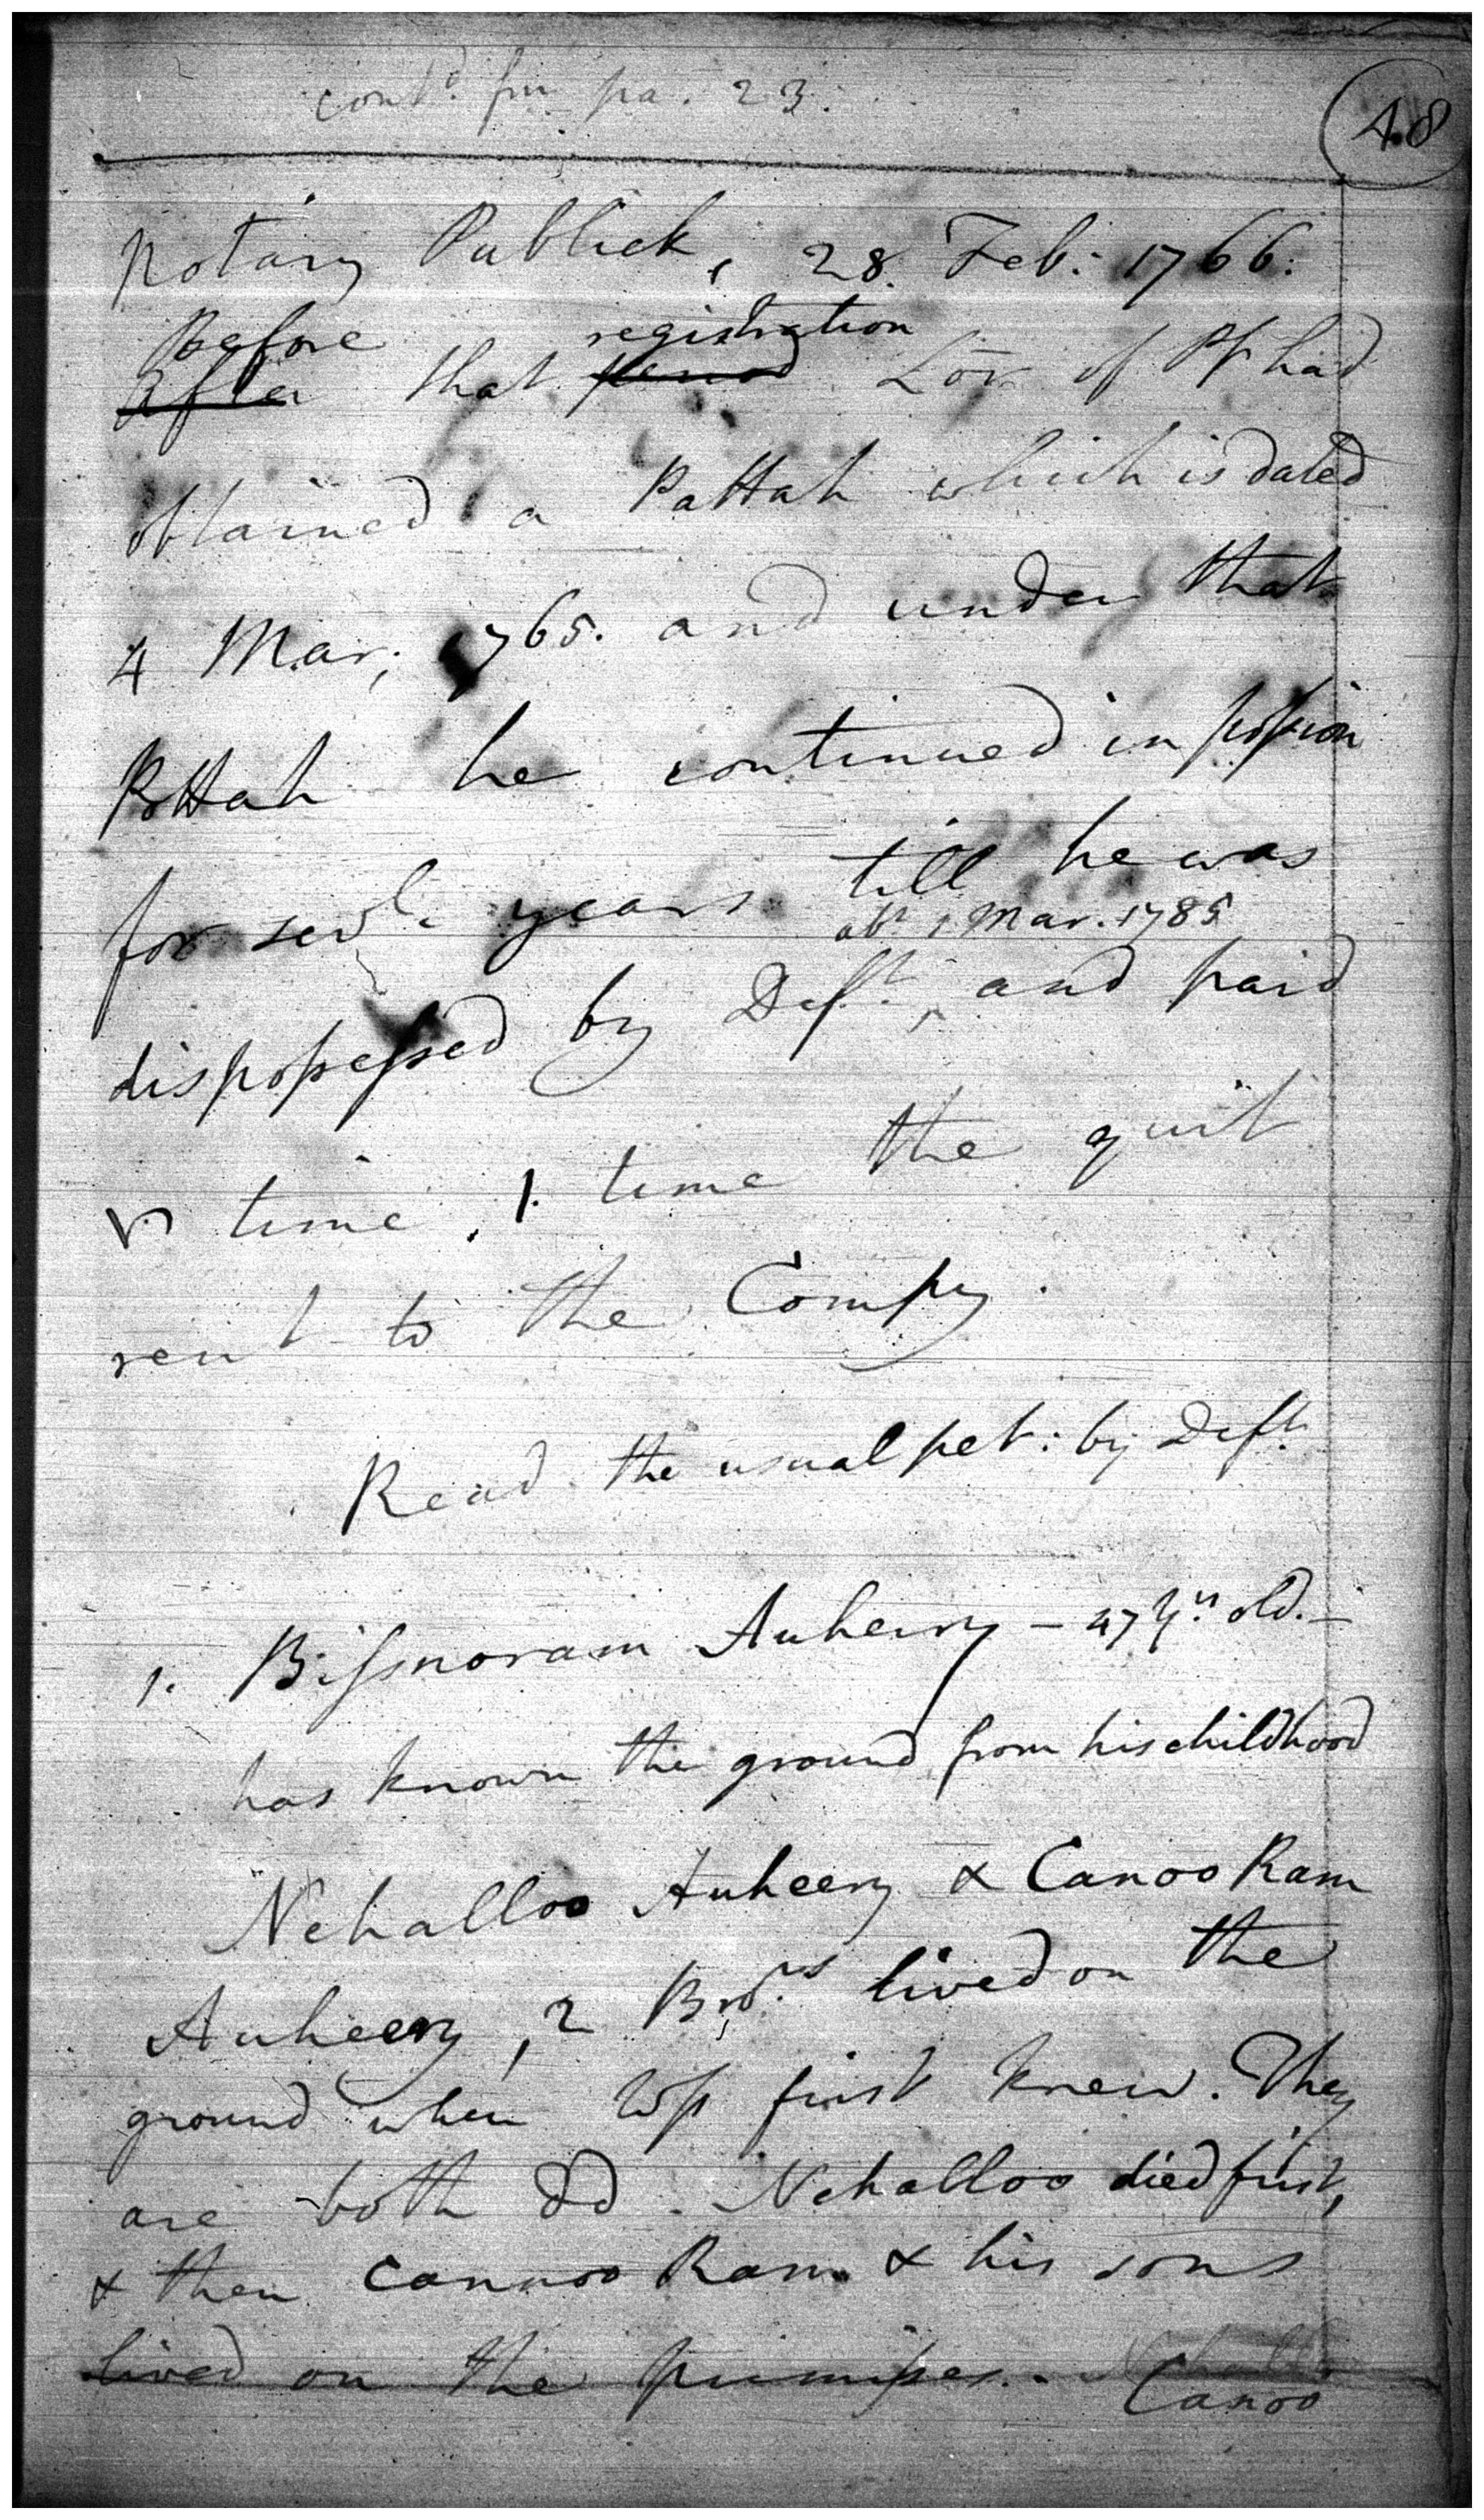 contd. fm pa. 23.
48
Notary Publick, 28. Feb: 1766.
Before registration
After that period Lor of Pf had
obtained a Pattah which is dated
4 Mar; 1765. and under that
Pattah he continued in possion
for sevl. years till he was
abt. 1 Mar. 1785
dispossessed by Deft. and paid
time . time the quit
rent to the Compy.
Read the usual pet: by Deft.
1. Bissnoram Auheery – 47 Yrs. old. –
has known the ground from his childhood
Nehalloo Auheery & Canoo Ram
Auheery, 2 Brors. lived on the
ground when Wss first knew. They
are both dd. Nehalloo died first,
& then Cannoo Ram & his sons
lived on the premises. –
Canoo